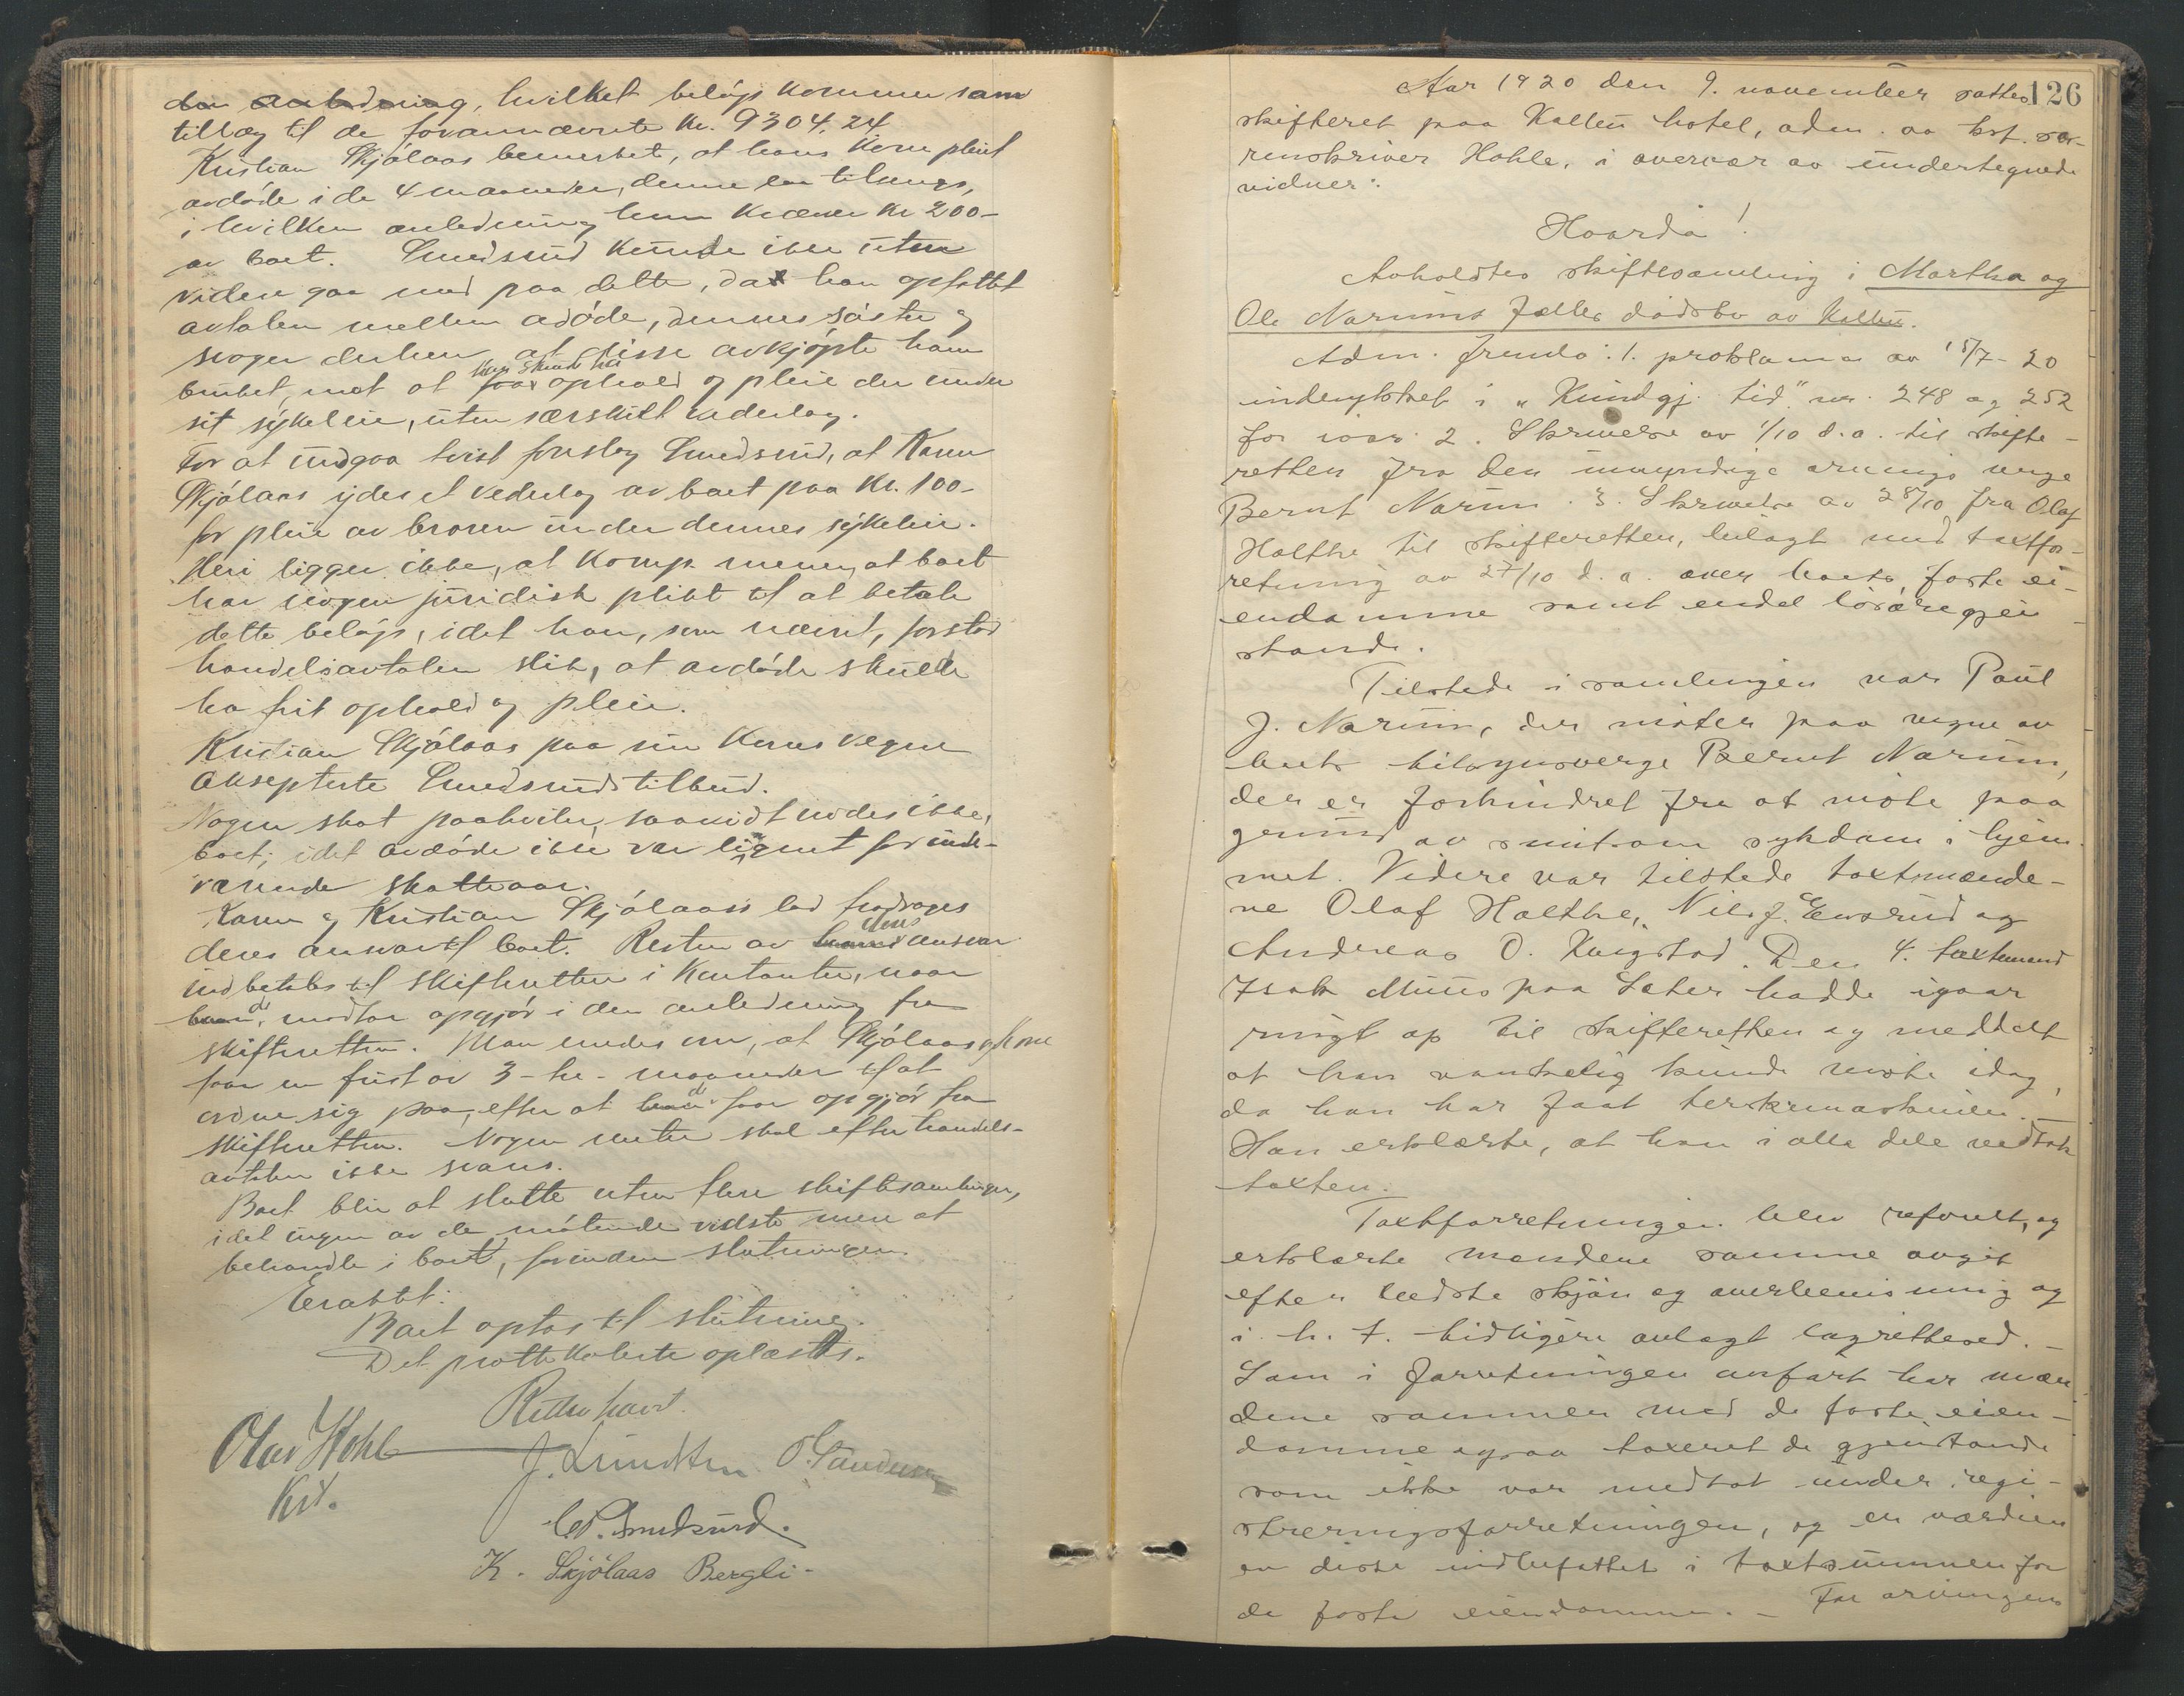 den anledning, hvilket beløp kommer som
tillæg til de forannævnte Kr. 9304,24.
Kristian Skjølaas bemerket, at hans kone pleiet
avdøde i de 4 maaneder, denne laa tilsengs,
i hvilken anledning hun kræver Kr 200-
av boet. Smedsrud kunde ikke uten
videre gaa med paa dette, da han opfattet
avtalen mellem adøde, dennes søster og
svoger derhen, at disse avkjøpte ham
bruket, mot at han skulde ha ophold og pleie der under
sit sykeleie, uten særskilt vederlag.
For at undgaa tvist foreslog Smedsrud, at Karen
Skjølaas ydes et vederlag av boet paa Kr. 100-
for pleie av broren under dennes sykeleie.
Heri ligger ikke, at Komp. mener, at boet
har nogen juridisk plikt til at betale
dette beløp, idet han, som nævnt, forstod
handelsavtalen slik, at avdøde skulde
ha frit ophold og pleie.
Kristian Skjølaas paa sin Kones vegne
aksepterte Smedsruds tilbud.
Nogen skat paahviler, saavidt vides ikke,
boet, idet avdøde ikke var lignet for inde-
værende skatteaar.
Karen og Kristian Skjølaas's lod fradrages
deres ansvar til boet. Resten av deres ansvar
indbetales til skifteretten i Kontanter, naar
de mottar opgjør i den anledning fra
skifteretten. Man enedes om, at Skjølaas og kone
faar en frist av 3- tre- maaneder til at
ordne sig paa, efter at de faar opgjør fra
skifteretten. Nogen renter skal efter handels-
avtalen ikke svares.
Boet blir at slutte uten flere skiftesamlinger,
idet ingen av de møtende vidste mere at
behandle i boet, forinden slutningen.
Eraktet:
Boet optas til slutning.
Det protokollerte oplæstes.
Retten hævet.
Olav Hohle
Kst.
J. Lundsten P. Sandersen
C.P. Smedsrud.
K. Skjølaas Bergli.
126
Aar 1920 den 9. november sattes
skifteret paa Kallen hotel, adm. av kst. so-
renskriver Hohle, i overvær av undertegnede
vidner:
Hvorda!
Avholdtes skiftesamling i Martha og
Ole Narums fælles dødsbo av Kallen.
Adm. fremla: 1. proklama av 15/7-20
inderykket i "Kundgj. tid" nr. 248 og 252
for iaar. 2. Skrivelse av 1/10 d.a. til skifte-
retten fra den umyndige arvings verge
Bernt Narum. 3. Skrivelse av 28/10 fra Olaf
Holthe til skifteretten, bilagt med taxtfor-
retning av 27/10 d.a. over boets faste ei-
endomme samt endel løsøregjen-
stande.
Tilstede i samlingen var Paul
J. Narum, der møter paa vegne av
boets tilsynsverge Bernt Narum,
der er forhindret fra at møte paa
grund av smitsom sykdom i hjem-
met. Videre var tilstede taxtmænde-
ne Olaf Holthe, Nils J. Ensrud og
Andreas O. Kongstad. Den 4. taxtmand
Isak Muus paa Sater hadde igaar
ringt op til skifteretten og meddelt
at han vanskelig kunde møte idag,
da han har faat terskemaskinen. -
Han erklærte, at han i alle dele vedtok
taxten.
Taxtforretningen blev referert, og
erklærte mændene samme avgit
efter bedste skjøn og overbevisning og
i h. t. tidligere avlagt lagretteed. -
Som i forretningen anført har mæn-
dene sammen med de faste eien-
domme ogsaa taxeret de gjenstande
som ikke var medtat under regi-
streringsforretningen, og er værdien
av disse indbefattet i taxtsummen for
de faste eiendomme. - For arvingen